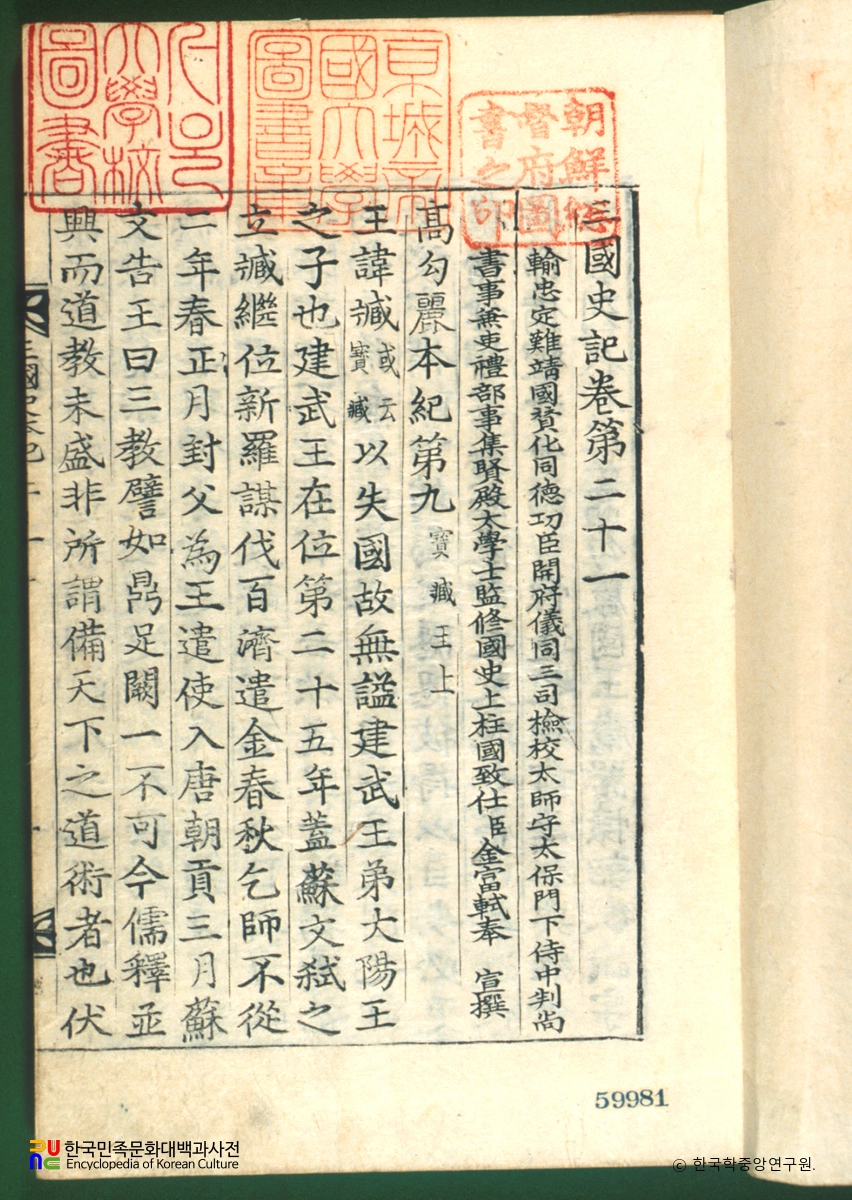 三國史記卷第二十一
輸忠定難靖國贊化同德功臣開府儀同三司檢校太師守太保門下侍中判尚
書事兼吏禮部事集賢殿太學士監修國史上柱國致仕臣金富軾奉 宣撰
高勾麗本紀第九 寶臧王上
王諱臧或云寶臧以失國故無謚建武王弟大陽王
之子也建武王在位第二十五年蓋蘇文弒之
立臧繼位新羅謀伐百濟遣金春秋乞師不從
二年春正月封父為王遣使入唐朝貢三月蘇
文告王曰三教譬如鼎足闕一不可今儒釋並
興而道教未盛非所謂備天下之道術者也伏
朝鮮總
督府圖
書之印
京城帝
國大學
圖書章
서울
大學校
圖書
59981
한국민족문화대백과사전
Encyclopedia of Korean Culture
© 한국학중앙연구원.